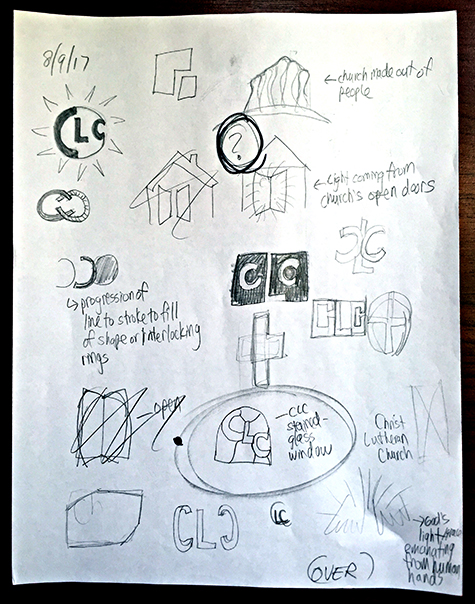 8/9/17
CLC
←church made out of
people
?
←Light coming from
church's open doors
CLC
CLC
CLC
↳progression of
line to stroke to fill
of shape or interlocking
rings
—open
CLC
—CLC
stained-
glass
window
Christ
Lutheran
Church
Ch
CLC
CLC
→God's
light
emanating
from human
hands
(OVER)